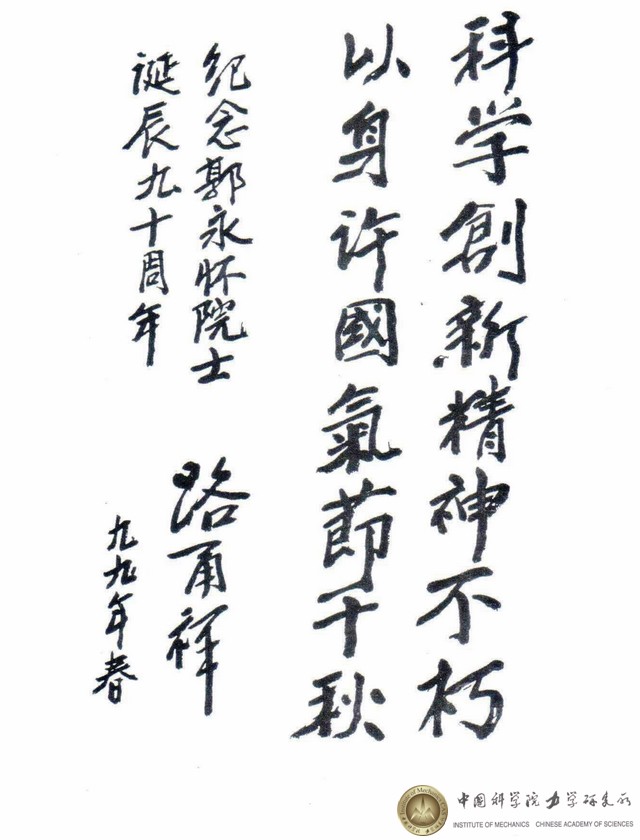 科学創新精神不朽
以身许國氣莭千秋
纪念郭永怀院士
诞辰九十周年
路甬祥
九九年春
中国科学院力学研究所
INSTITUTE OF MECHANICS CHINESE ACADEMY OF SCIENCES